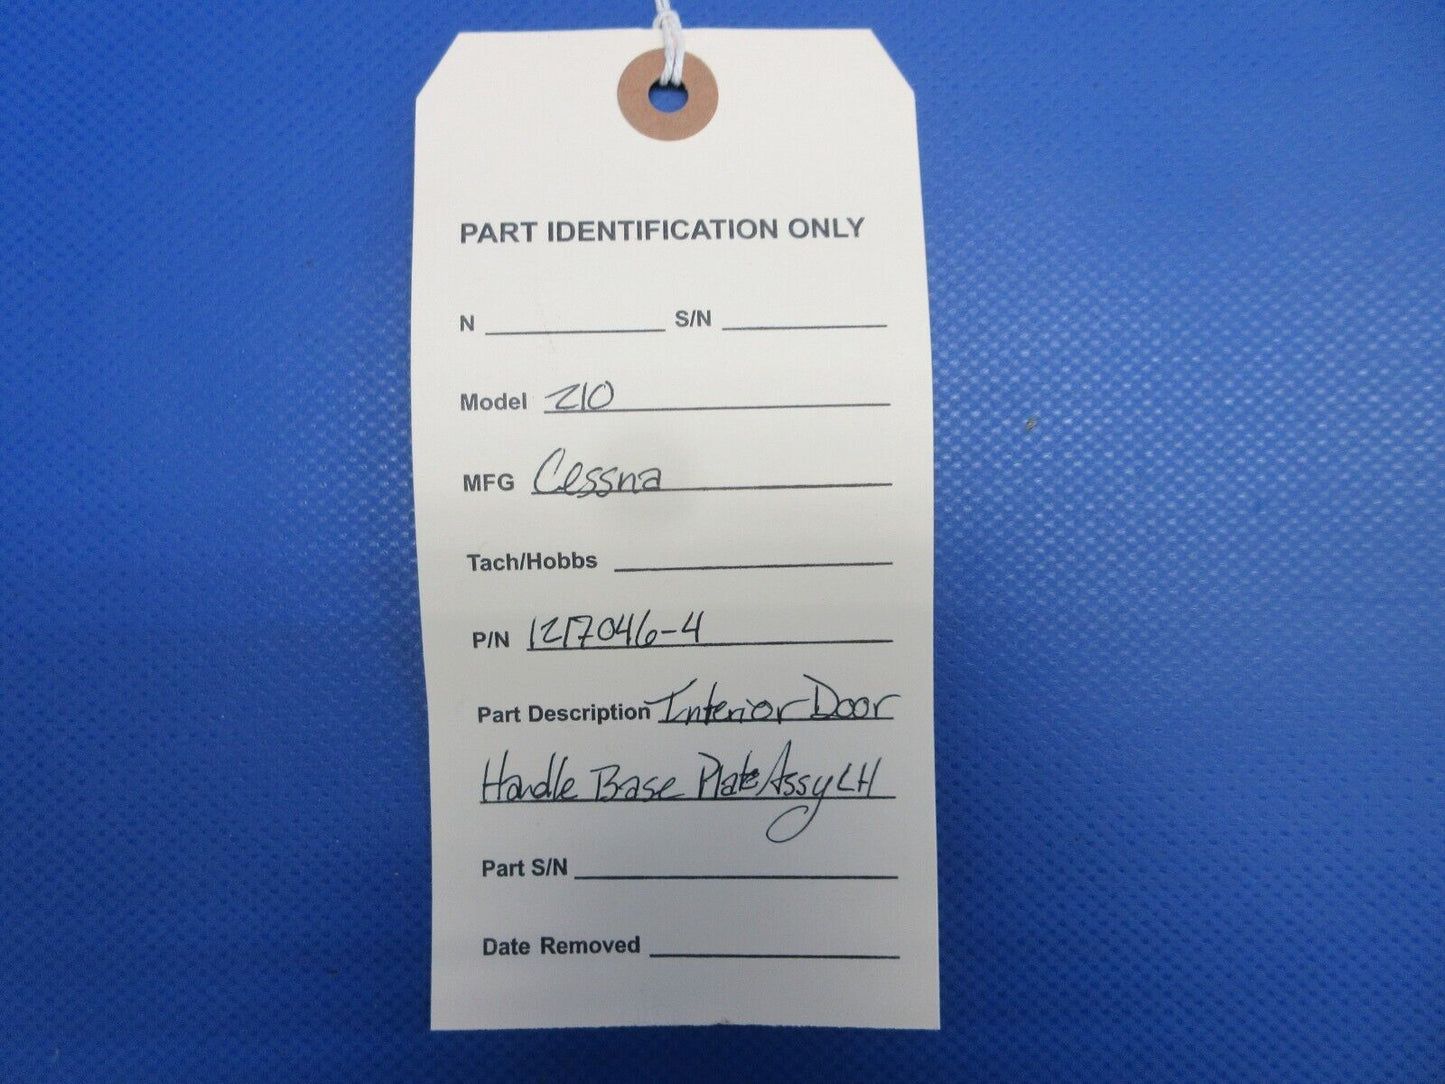 PART IDENTIFICATION ONLY
N S/N
Model 210
MFG Cessna
Tach/Hobbs
P/N 1217046-4
Part Description Interior Door
Handle Base Plate Assy LH
Part S/N
Date Removed